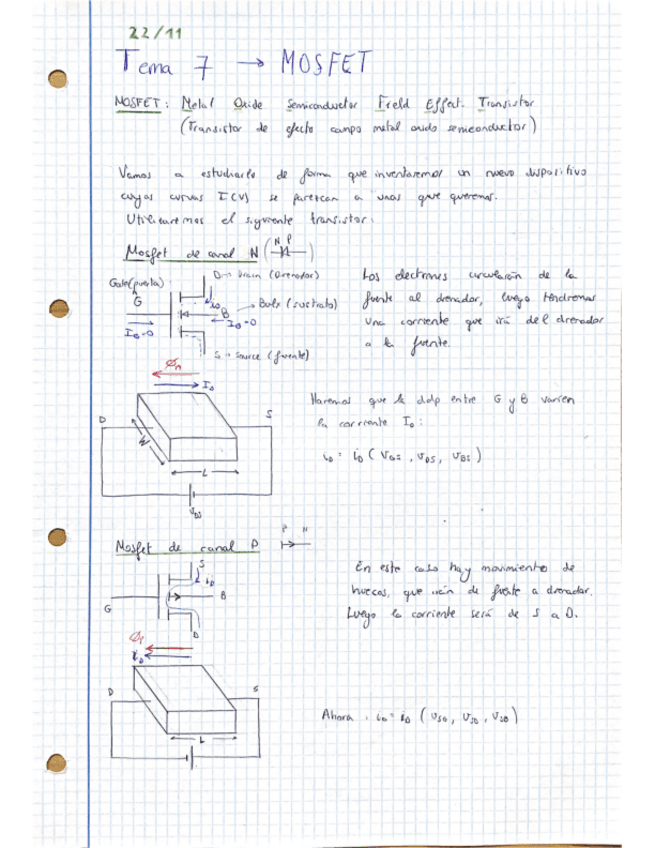 22/11
Tema 7 → MOSFET
MOSFET: Metal Oxide Semiconductor Field Effect Transistor
(Transistor de efecto campo metal oxido semiconductor)
Vamos a estudiarlo de forma que inventaremos un nuevo dispositivo
cuyas curvas I(V) se parezcan a unas que queremos.
Utilizaremos el siguiente transistor:
Mosfet de canal N
N P
Gate (puerta)
G
D = Drain (Drenador)
B → Bulk (sustrato)
S = Source (fuente)
Los electrones circularán de la
fuente al drenador, luego tendremos
una corriente que irá del drenador
a la fuente.
I_D
I_G=0
I_B=0
Φn
I_D
D
S
W
L
V_DS
Haremos que la ddp entre G y B varíen
la corriente I_D:
i_D = i_D (V_GS, V_DS, V_BS)
Mosfet de canal P
P N
S
i_D
G
B
D
En este caso hay movimiento de
huecos, que irán de fuente a drenador.
Luego la corriente será de S a D.
i_D
D
S
L
Ahora: i_D = i_D (V_SG, V_SD, V_SB)